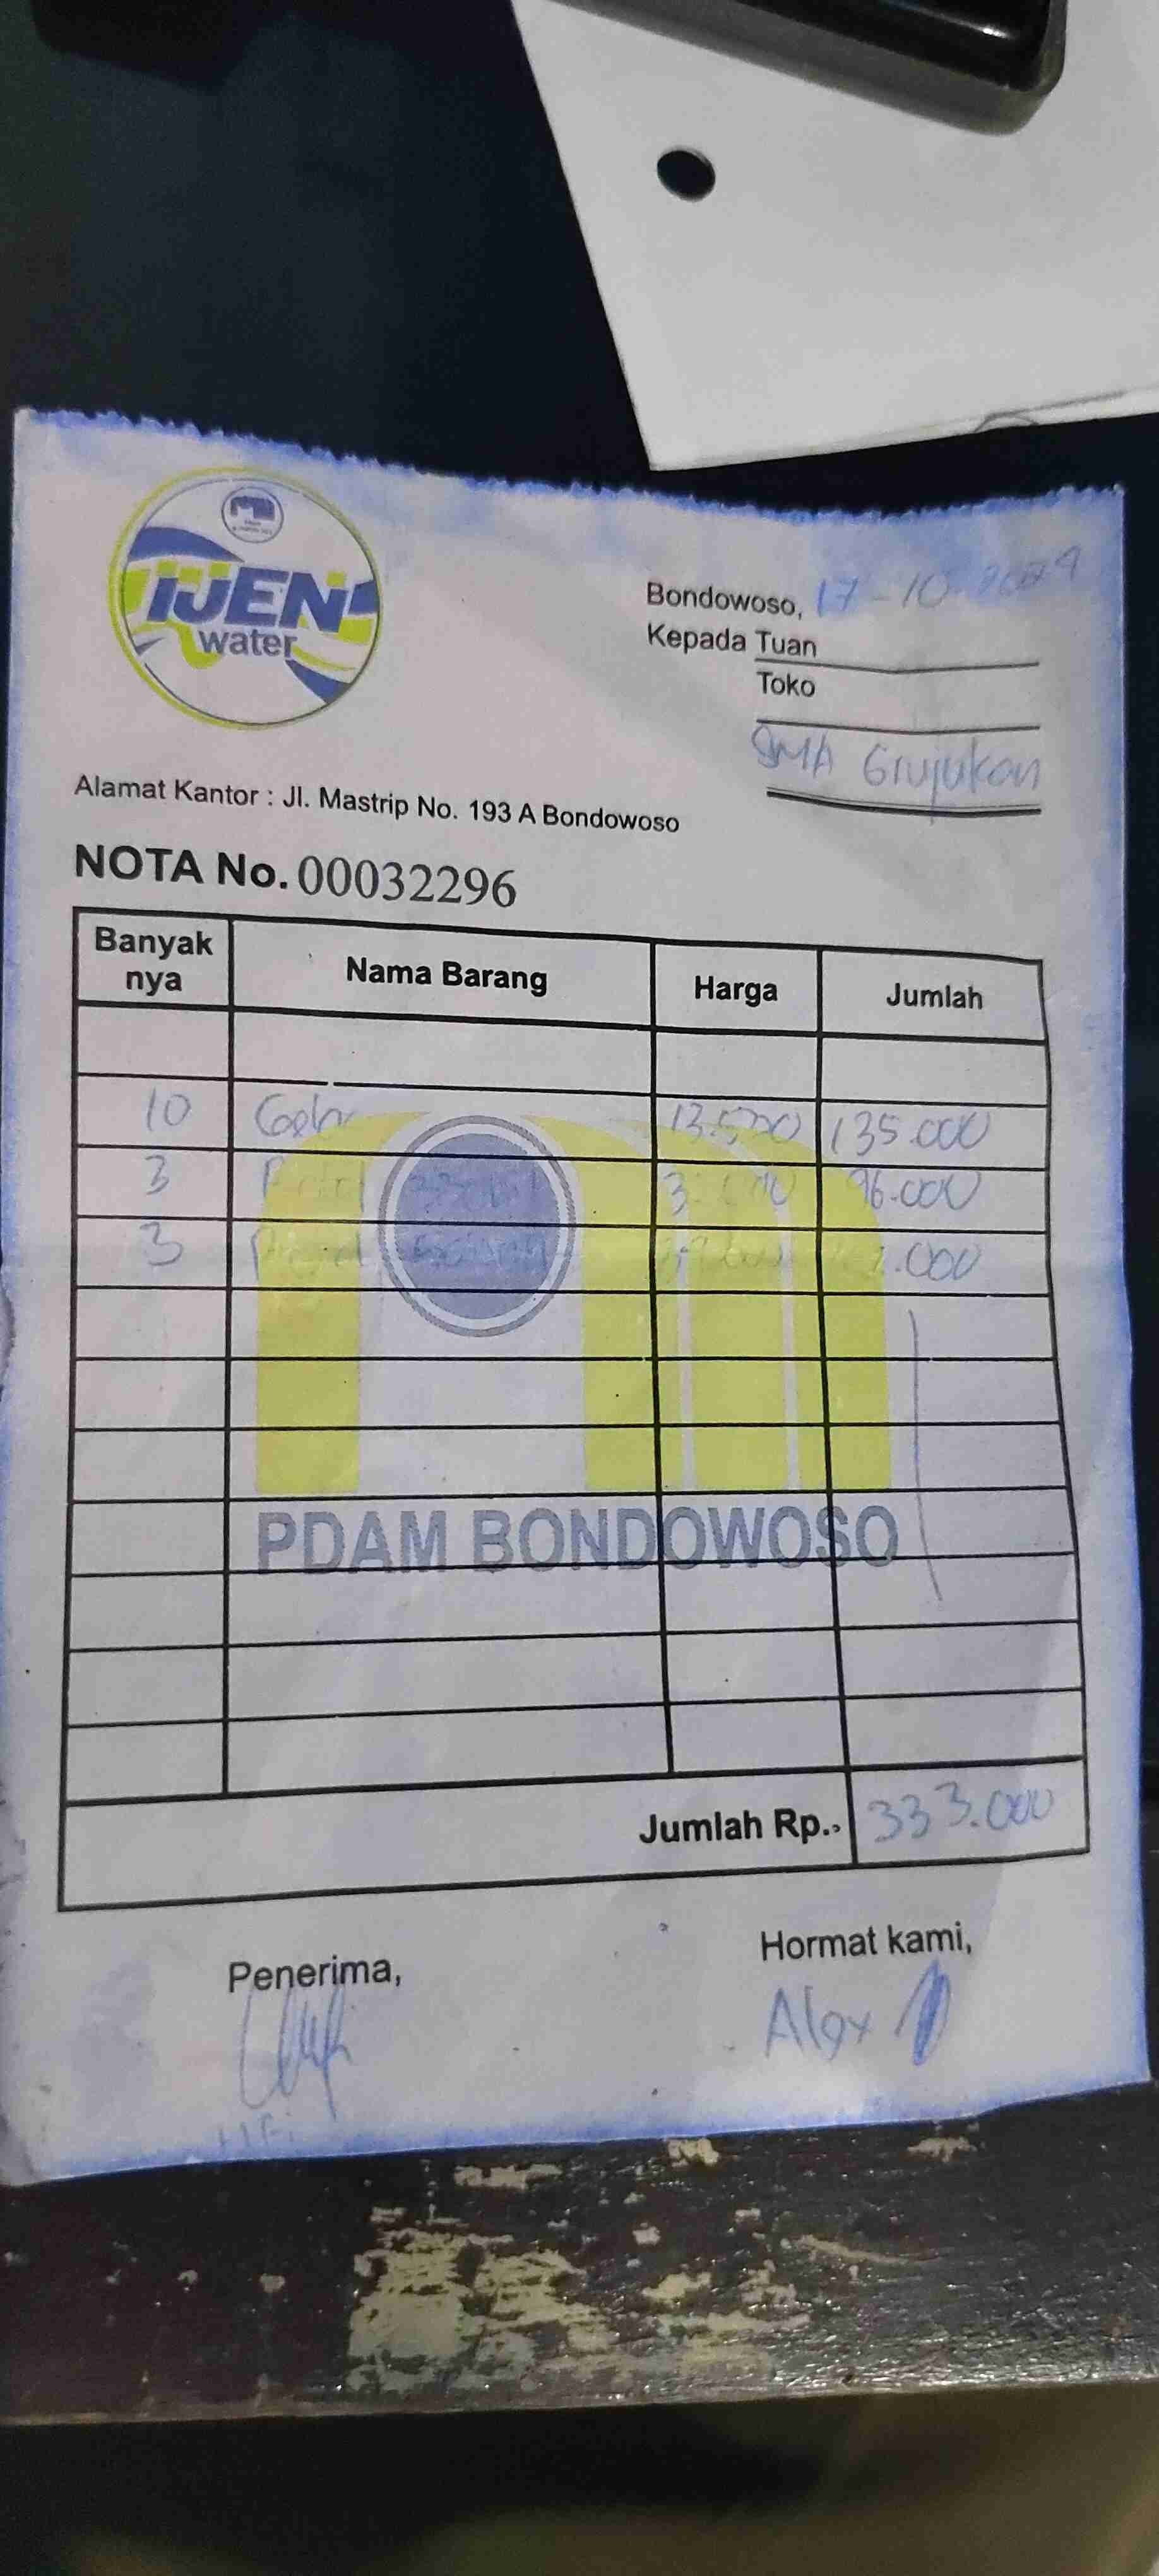 IJEN
water
Bondowoso, 17-10-2024
Kepada Tuan
Toko
SMA Grujukan
Alamat Kantor : Jl. Mastrip No. 193 A Bondowoso
NOTA No. 00032296
Banyak nya Nama Barang Harga Jumlah
10 13.500 135.000
3 96.000
3
PDAM BONDOWOSO
Jumlah Rp., 333.000
Penerima,
Hormat kami,
Alex